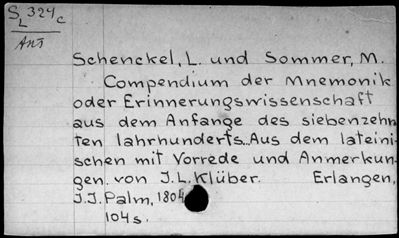 SL 324c
Ans
Schenckel, L. und Sommer, M.
Compendium der Mnemonik
oder Erinnerungswissenschaft
aus dem Anfange des siebenzehn
ten Iahrhunderts. Aus dem lateini-
schen mit Vorrede und Anmerkun-
gen von J.L. Klüber. Erlangen,
J.J. Palm, 1804
104 s.